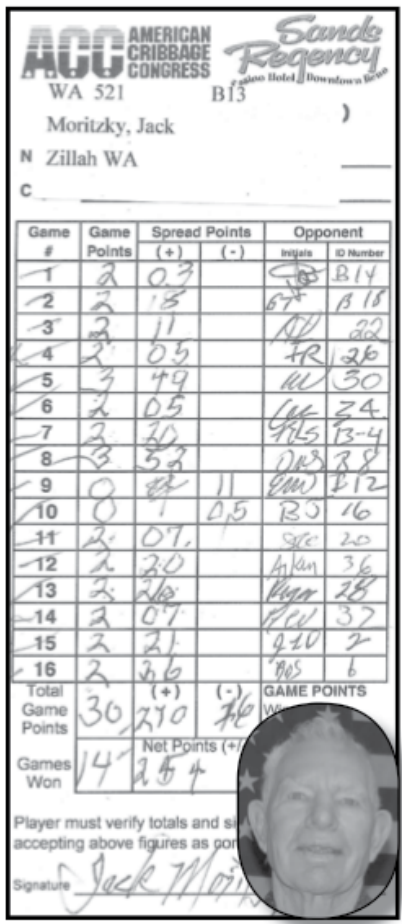 ACC AMERICAN CRIBBAGE CONGRESS
Sands Regency
Casino Hotel Downtown Reno
WA 521 B13
Moritzky, Jack )
N Zillah WA
C
Game # Game Points Spread Points (+) (-) Opponent Initials ID Number
1 2 03 B14
2 2 18 B 18
3 2 11 22
4 2 05 FR 26
5 3 49 30
6 2 05 24
7 2 20 B-4
8 3 52 B8
9 0 11 B12
10 0 05 BJ 16
11 2 07 20
12 2 20 36
13 2 26 28
14 2 07 37
15 2 21 2
16 2 26 6
Total Game Points 30 (+) 270 (-) GAME POINTS
Games Won 14 Net Points (+/ 254
Player must verify totals and si
accepting above figures as cor
Signature Jack Mori